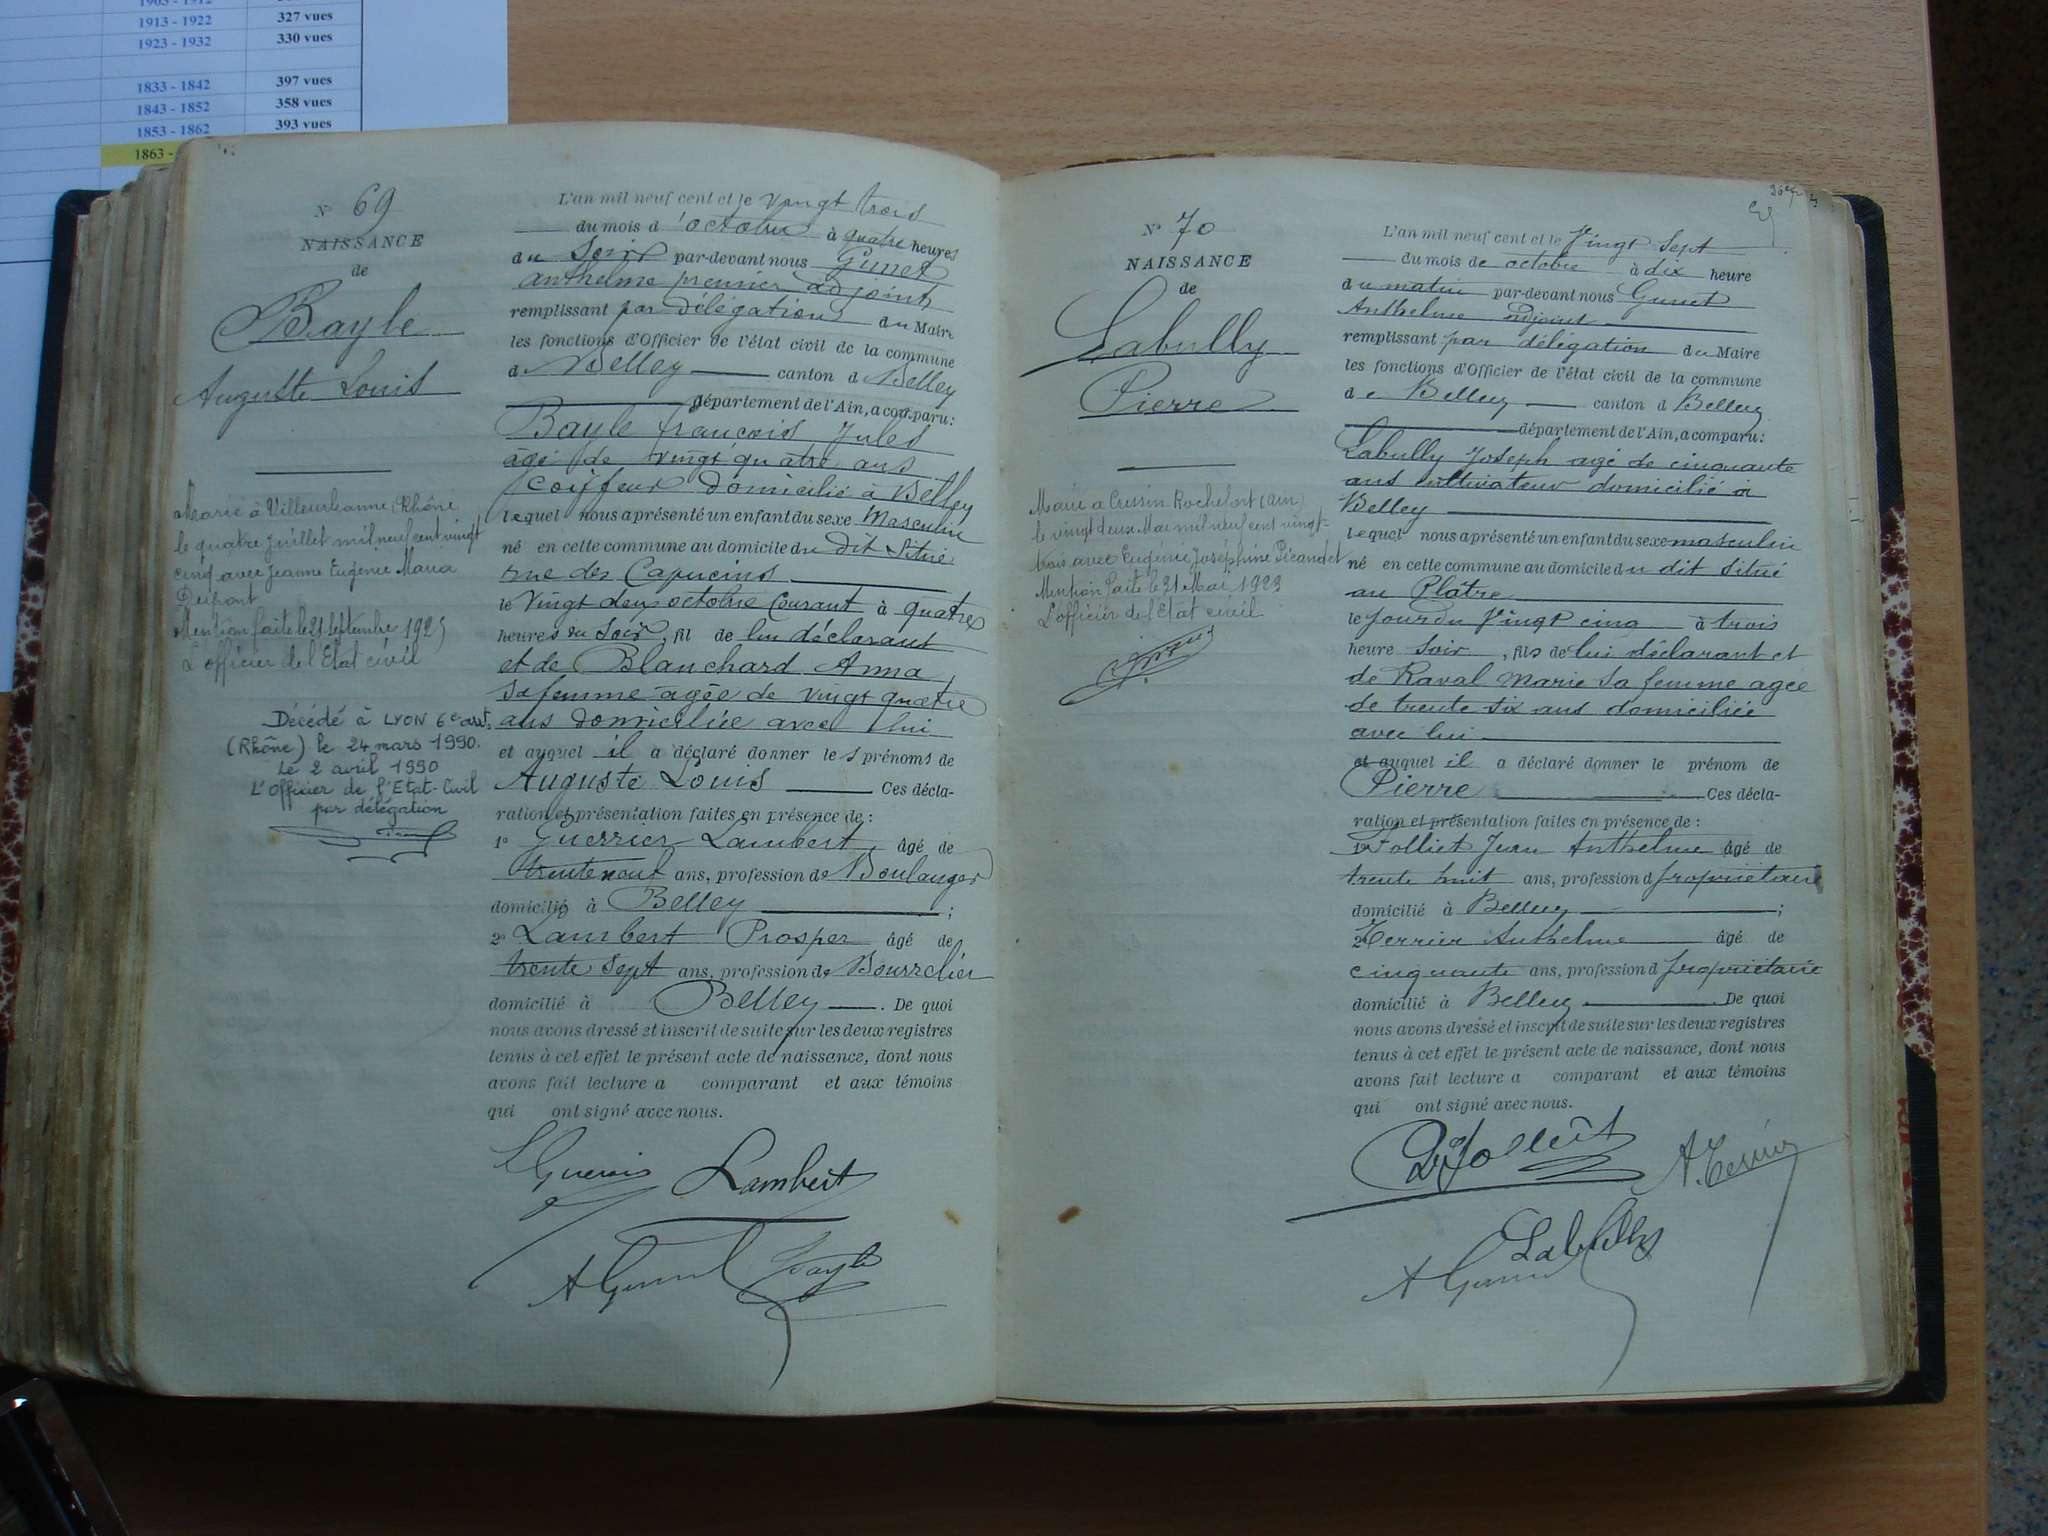 1913 - 1922 327 vues
1923 - 1932 330 vues
1833 - 1842 397 vues
1843 - 1852 358 vues
1853 - 1862 393 vues
1863 -
N° 69
NAISSANCE
de
Bayle
Auguste Louis
Marié à Villeurbanne (Rhône
le quatre juillet mil neuf cent vingt
cinq avec Jeanne Eugénie Maria
Mention faite le 21 septembre 1925
L'officier de l'Etat civil
Décédé à LYON 6e arrt.
(Rhône) le 24 mars 1990.
Le 2 avril 1990
L'Officier de l'Etat-Civil
par délégation
L'an mil neuf cent et le vingt trois
du mois d'octobre à quatre heures
du soir par-devant nous Gunet
anthelme premier adjoint
remplissant par délégation du Maire
les fonctions d'Officier de l'état civil de la commune
d Belley canton d Belley
département de l'Ain, a comparu:
Bayle françois Jules
âgé de vingt quatre ans
Coiffeur domicilié à Belley
lequel nous a présenté un enfant du sexe Masculin
né en cette commune au domicile du dit Situé
rue des Capucins
le vingt deux octobre Courant à quatre
heures du soir, fil de lui déclarant
et de Blanchard Anna
sa femme âgée de vingt quatre
ans domiciliée avec lui
et auquel il a déclaré donner le s prénoms de
Auguste Louis Ces décla-
ration et présentation faites en présence de :
1° Guerrier Lambert, âgé de
trente neuf ans, profession de Boulanger
domicilié à Belley ;
2° Lambert Prosper âgé de
trente sept ans, profession de Bourrelier
domicilié à Belley. De quoi
nous avons dressé et inscrit de suite sur les deux registres
tenus à cet effet le présent acte de naissance, dont nous
avons fait lecture a comparant et aux témoins
qui ont signé avec nous.
Lambert
A Gunet Bayle
N° 70
NAISSANCE
de
Labully
Pierre
Marié a Cressin Rochefort (ain)
le vingt deux Mai mil neuf cent vingt-
trois avec Eugénie Joséphine Picandet
Mention faite le 31 Mai 1923
L'officier de l'Etat civil
L'an mil neuf cent et le Vingt Sept
du mois de octobre à dix heure
du matin par-devant nous Gunet
Anthelme adjoint
remplissant par délégation du Maire
les fonctions d'Officier de l'état civil de la commune
de Belley canton d Belley
département de l'Ain, a comparu:
Labully Joseph agé de cinquante
ans cultivateur domicilié à
Belley
lequel nous a présenté un enfant du sexe masculin
né en cette commune au domicile du dit situé
au Plâtre
le jour du Vingt cinq à trois
heure soir, fils de lui déclarant et
de Raval Marie Sa femme agée
de trente six ans domiciliée
avec lui
et auquel il a déclaré donner le prénom de
Pierre Ces décla-
ration et présentation faites en présence de :
1° Folliet Jean Anthelme âgé de
trente huit ans, profession d propriétaire
domicilié à Belley ;
2° Terrier Anthelme âgé de
cinquante ans, profession d propriétaire
domicilié à Belley. De quoi
nous avons dressé et inscrit de suite sur les deux registres
tenus à cet effet le présent acte de naissance, dont nous
avons fait lecture a comparant et aux témoins
qui ont signé avec nous.
Folliet
Labully
A Gunet